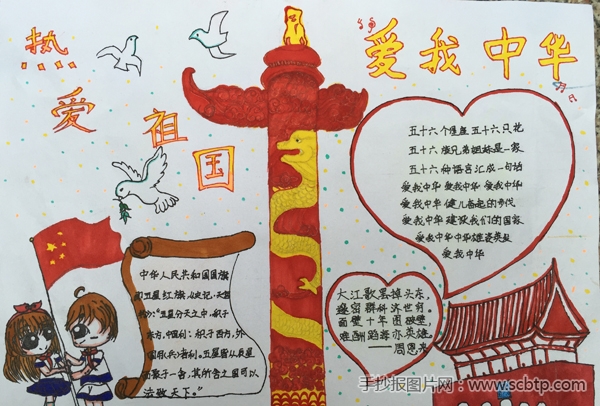 热爱祖国
爱我中华
五十六个星座 五十六只花
五十六族兄弟姐妹是一家
五十六种语言汇成一句话
爱我中华 爱我中华 爱我中华
爱我中华 健儿奋起的步伐
爱我中华 建设我们的国家
爱我中华中华雄姿英发
爱我中华
大江歌罢掉头东，
邃密群科济世穷。
面壁十年图破壁，
难酬蹈海亦英雄。
——周恩来
中华人民共和国国旗
五星红旗
"五星分天之中，积于
东方，中国利；积于西方，外
国用(兵)者利。五星
一舍，其所舍之国可以
法致天下。"
手抄报图片网：www.scbtp.com